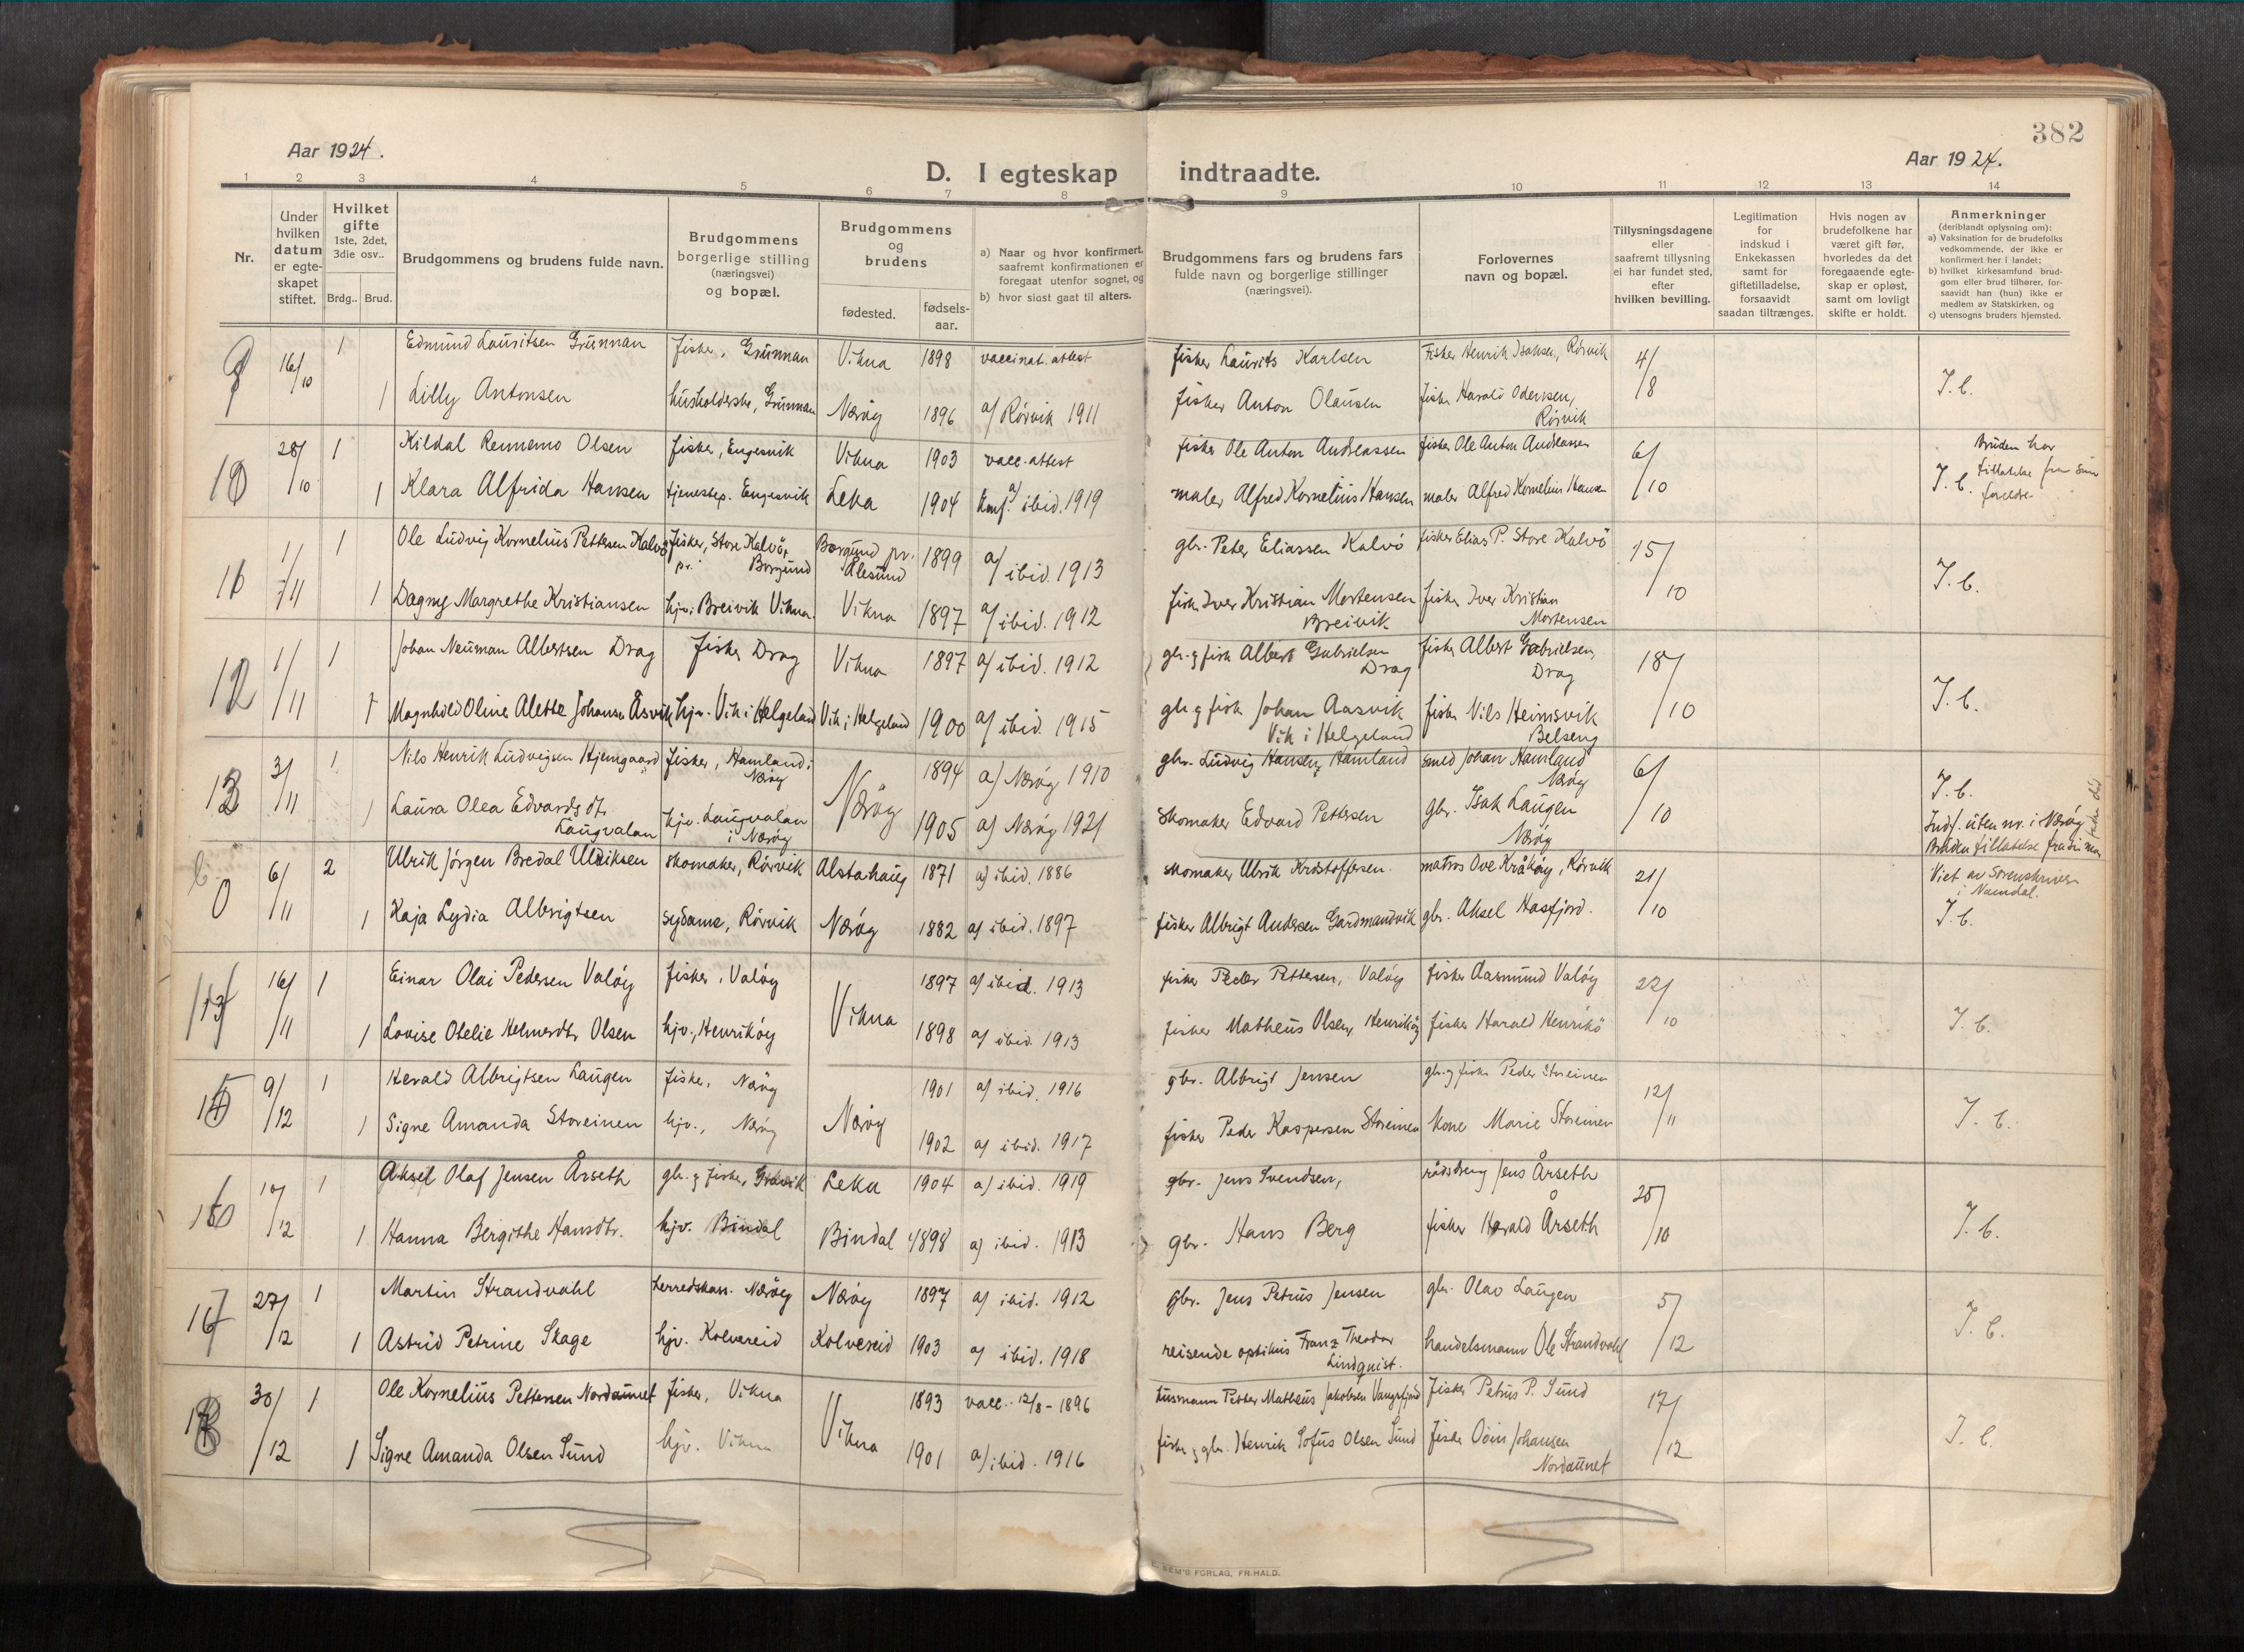 382
Aar 1924.
Aar 1924.
D. I egteskap indtraadte.
1 2 3 4 5 6 7 8 9 10 11 12 13 14
Nr.
Under hvilken datum er egte-skapet stiftet.
Hvilket gifte 1ste, 2det, 3die osv..
Brdg.. Brud.
Brudgommens og brudens fulde navn.
Brudgommens borgerlige stilling (næringsvei) og bopæl.
Brudgommens og brudens
fødested. fødsels-aar.
a) Naar og hvor konfirmert, saafremt konfirmationen er foregaat utenfor sognet, og
b) hvor sidst gaat til alters.
Brudgommens fars og brudens fars fulde navn og borgerlige stillinger (næringsvei).
Forlovernes navn og bopæl.
Tillysningsdagene eller saafremt tillysning ei har fundet sted, efter hvilken bevilling.
Legitimation for indskud i Enkekassen samt for giftetilladelse, forsaavidt saadan tiltrænges.
Hvis nogen av brudefolkene har været gift før, hvorledes da det foregaaende egte-skap er opløst, samt om lovligt skifte er holdt.
Anmerkninger (deriblandt oplysning om):
a) Vaksination for de brudefolks vedkommende, der ikke er konfirmert her i landet;
b) hvilket kirkesamfund brud-gom eller brud tilhører, for-saavidt han (hun) ikke er medlem av Statskirken, og
c) utensogns bruders hjemsted.
16/10 1 Edmund Lauritsen Grünnan fisker, Grünnan Vikna 1898 vaccinat. attest fisker Laurits Karlsen Fisker Henrik Isaksen, Rörvik 4/8 J. b.
1 Lilly Antonsen husholderske, Grünnan Næröy 1896 a/ Rörvik 1911 fisker Anton Olausen fisker Harald Odensen, Rörvik
10 28/10 1 Kildal Rennemo Olsen fisker, Engesvik Vikna 1903 vacc. attest fisker Ole Anton Andreassen fisker Ole Anton Andreassen 6/10 J. b. Bruden har tilladelse fra sine forældre
1 Klara Alfrida Hansen tjenestep. Engesvik Leka 1904 Konf. a/ ibid. 1919 maler Alfred Kornelius Hansen maler Alfred Kornelius Hansen
11 1/11 1 Ole Ludvig Kornelius Pettersen Kalvö fisker, Store Kalvö, pr. Borgund Borgund pr. Ålesund 1899 a/ ibid. 1913 gbr. Peter Eliassen Kalvö fisker Elias P. Store Kalvö 15/10 J. b.
1 Dagny Margrethe Kristiansen hjv. Breivik Vikna. Vikna 1897 a/ ibid. 1912 fisk. Iver Kristian Mortensen Breivik fisker Iver Kristian Mortensen
12 1/11 1 Johan Neuman Albertsen Drag fisker Drag Vikna 1897 a/ ibid. 1912 gbr. g fisk Albert Gabrielsen Drag fisker Albert Gabrielsen, Drag 18/10 J. b.
1 Magnhild Oline Alette Johanse Åsvik hjv. Vik i Helgeland Vik i Helgeland 1900 a/ ibid. 1915 gbr g fisk Johan Aasvik Vik i Helgeland fisker Nils Heimsvik Belseng
13 3/11 1 Nils Henrik Ludvigsen Hjemgaard fisker, Hamland i Næröy Næröy 1894 a) Næröy 1910 gbr. Ludvig Hansen, Hamland smed Johan Hamland Næröy 6/10 J. b.
1 Laura Olea Edvardsdtr. Laugvalan hjv. Laugvalan i Næröy 1905 a) Næröy 1921 skomaker Edvard Pettersen gbr. Isak Laugen Næröy Indf. uten nr. i Næröy Bruden tilladelse fra sin mor
0 6/11 2 Ulrik Jörgen Bredal Ulriksen skomaker, Rörvik Alstahaug 1871 a) ibid. 1886 skomaker Ulrik Kristoffersen. matros Ove Kråköy, Rörvik 21/10 Viet av Sorenskriver i Namdal. J. b.
1 Kaja Lydia Albrigtsen sydame, Rörvik Næröy 1882 a) ibid. 1897 fisker Albrigt Andersen Gardmandvik gbr. Aksel Hasfjord.
16/11 1 Einar Olai Pedersen Valöy fisker, Valöy Vikna 1897 a/ ibid. 1913 fisker Peder Pettersen, Valöy fisker Aasmund Valöy 22/10 J. b.
1 Lovise Otelie Helmersdtr Olsen hjv., Henriköy 1898 a/ ibid. 1913 fisker Matheus Olsen, Henriköy fisker Harald Henrikö
9/12 1 Harald Albrigtsen Laugen fisker, Næröy Næröy 1901 a/ ibid. 1916 gbr. Albrigt Jensen gbr. g fisker Peder Storeinen 12/11 J. b.
1 Signe Amanda Storeinen hjv., Næröy 1902 a/ ibid. 1917 fisker Peder Kaspersen Storeinen kone Marie Storeinen
10/12 1 Aksel Olaf Jensen Årseth gbr. g fisker, Gravik Leka 1904 a/ ibid. 1919 gbr. Jens Svendsen, rådsdreng Jens Årseth 25/10 J. b.
1 Hanna Bergithe Hansdtr. hjv. Bindal Bindal 1898 a) ibid. 1913 gbr. Hans Berg fisker Harald Årseth
27/12 1 Martin Strandvahl Herredskass. Næröy Næröy 1897 a/ ibid. 1912 gbr. Jens Petrus Jensen gbr. Olav Laugen 5/12 J. b.
1 Astrid Petrine Skage hjv. Kolvereid Kolvereid 1903 a/ ibid. 1918 reisende optikus Franz Theodor Lindquist. handelsmann Ole Strandvahl
30/12 1 Ole Kornelius Pettersen Nordaunet fisker, Vikna Vikna 1893 vacc. 12/8 - 1896 husmann Petter Mattheus Jakobsen Vangsfjord fisker Petrus P. Sund 17/12 J. b.
1 Signe Amanda Olsen Sund hjv. Vikna 1901 a/ ibid. 1916 fisker g gbr. Henrik Sofus Olsen Sund fisker Odin Johansen Nordaunet
SEM'S FORLAG, FR.HALD.